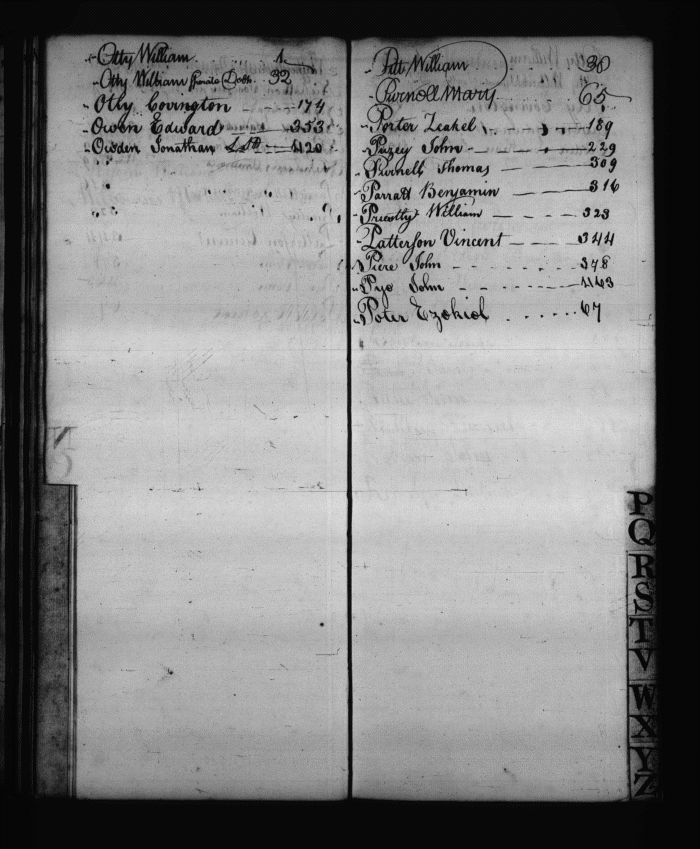 Otty William 1
Otty William Private Debts 32
Otty Covington 174
Owen Edward 353
Owden Jonathan 420
Pitt William 38
Purnell Mary 65
Porter Leakel 189
Puzey John 229
Purnell Thomas 309
Parratt Benjamin 316
William 323
Patterson Vincent 344
Piere John 378
Pye John 463
Poter Ezekiel 67
N
O
P
Q
R
S
T
V
W
X
Y
Z